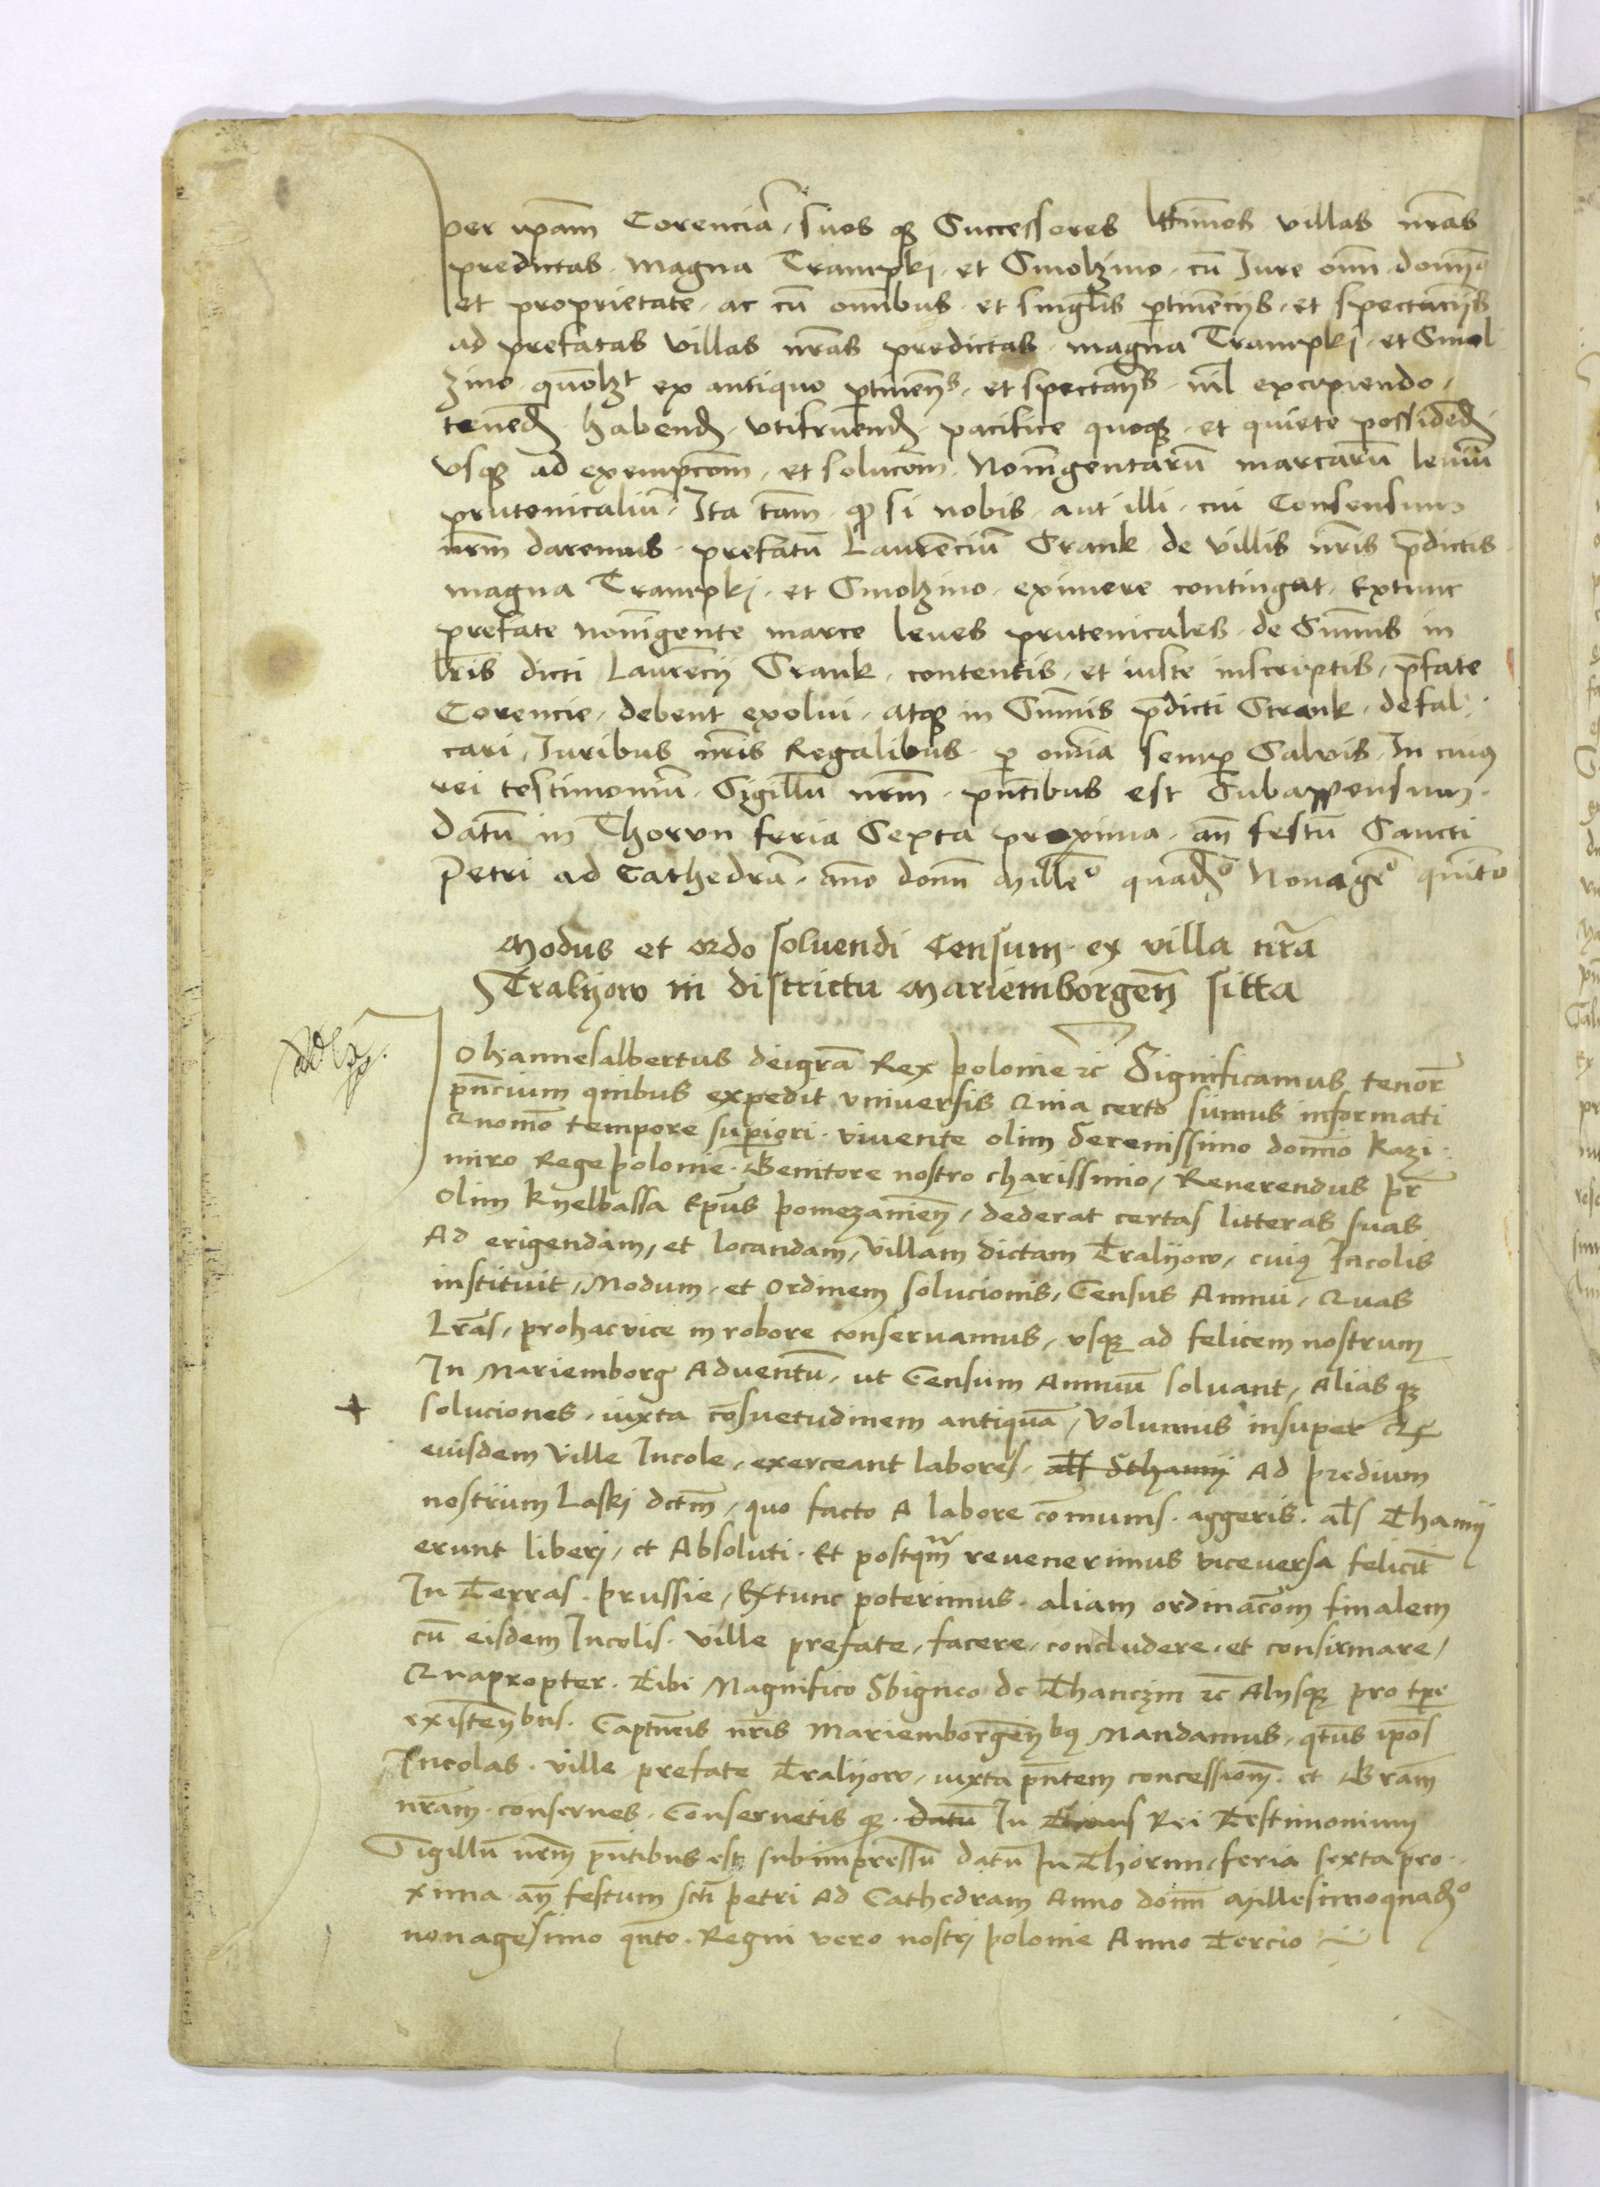 per ip̄am Corenciā, suos q̨ Successores l̄timos villas nr̄as
predictas magna Trampki et Smolzino cū Iure om̄i dominio
et proprietate, ac cū om̄ibus et singul̄is ꝑtinēciis, et spectanciis
ad prefatas villas nr̄as predictas magna Trampki, et Smol
zino quōlꝫt ex antiquo ꝑtinens, et spectans, nil excipiendo,
tenend̄ habend̄ vtifruend̄ pacifice quoq̨ et quiete possidēd̄
vsq̨ ad exempc̄om̄, et soluc̄om̄ Nonīgentarū marcarū leuiū
prutenicaliū, Ita tam̄ q̄ si nobis aut illi, cui Consensum
nr̄m daremus prefatū Laurēciū Crank de villis nr̄is p̄dictis
magna Trampki et Smolzino eximere contingat, Extunc
prefate nonīgente marce leues prutenicales de Sum̄is in
lr̄is dicti Laurēcij Crank contentis, et iuste inscriptis, p̄fate
Corencie, debent exolui, atq̨ in Sum̄is p̄dicti Crank, defal
cari, Iuribus nr̄is Regalibus ꝑ om̄ia semꝑ Saluis, In cuiꝰ
rei testimoniū, Sigillū nr̄m pn̄tibus est Subappensum
Datū in Thorvn feria Sexta proxima, an̄ festū Sancti
Petri ad Cathedrā, an̄o domi Mill̄e° quad̄° Nonagē° quīto
Modus et ordo soluendi Censum ex villa nr̄a
Tralyow in districtu Mariemborgen̄ sitta
Johannesalbertus deigrā Rex polonie ꝛc Significamus tenor̄
pn̄cium quibus expedit vniuersis Quia certo sumus informati
Quomō tempore superiori viuente olim Serenissimo domīo Kazi
miro Rege polonie Genitore nostro charissimo, Reuerendus pr̄
olim knelbassa Ep̄us pomezanien̄, dederat certas litteras suas
Ad erigendam, et locandam, villam dictam Tralyow, cuiꝰ Incolis
instituit, Modum et Ordinem solucionis, Census Annui, Quas
Lr̄as, prohacvice in robore conseruamus, vsq̨ ad felicem nostrum
In Mariemborg Aduentū, ut Censum Annuū soluant, Alias q̨
soluciones, iuxta cōsuetudinem antiquā, Volumus insuper Qꝫ
eiusdem Ville Incole, exerceant labores, al̄s Sthamy Ad predium
nostrum Laski dctm̄, quo facto A labore cōmunis aggeris al̄s Thamy
erunt liberi, et Absoluti Et postqm̄ reuenerimus viceuersa felicit̄
In Terras prussie, Extunc poterimus aliam ordinac̄om finalem
cū eisdem Incolis ville prefate, facere, concludere et confirmare,
Quapropter Tibi Magnifico Sbigneo de Thanczin ꝛc Alysq̨ pro tpr̄e
existen̄bus Captūeis nr̄is Mariemborgen̄bꝰ Mandamus, qt̄us ip̄os
Incolas ville prefate Tralyow, iuxta pn̄tem concession̄ et Grām
nr̄am conserues Conseruetis q̨ datū In Cuius Rei Testimonium
Sigillū nr̄m pn̄tibus est subimpressū datū In Thorun feria sexta pro
xima an̄ festum sct̄i petri Ad Cathedram Anno domī Millesimoquad̄°
nonagesimo qn̄to Regni vero nostri polonie Anno Tercio